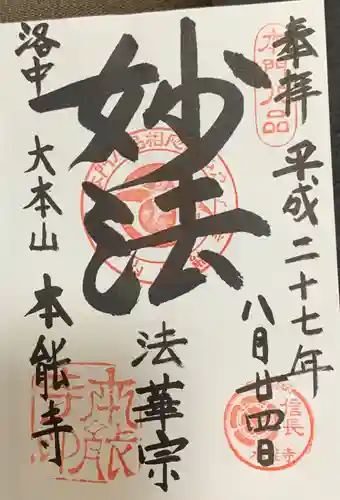 奉拝
平成二十七年
八月廿四日
妙法
法華宗
洛中 大本山 本能寺
信長